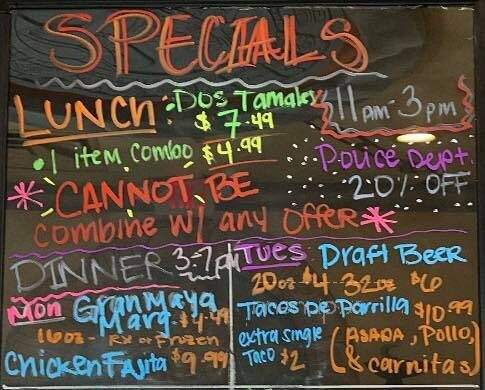 SPECIALS
LUNCH
Dos Tamales
$7.49
11am-3pm
• 1 item Combo $4.99
Police Dept.
20% OFF
* CANNOT BE
combine w/ any offer *
DINNER 3-7pm
Mon Gran Maya
Marg $4.49
16oz - Rx or Frozen
Chicken Fajita $9.99
Tues Draft Beer
20oz $4 - 32oz $6
Tacos De Parrilla $10.99
extra single
Taco $2
(ASADA, Pollo,
& carnitas)